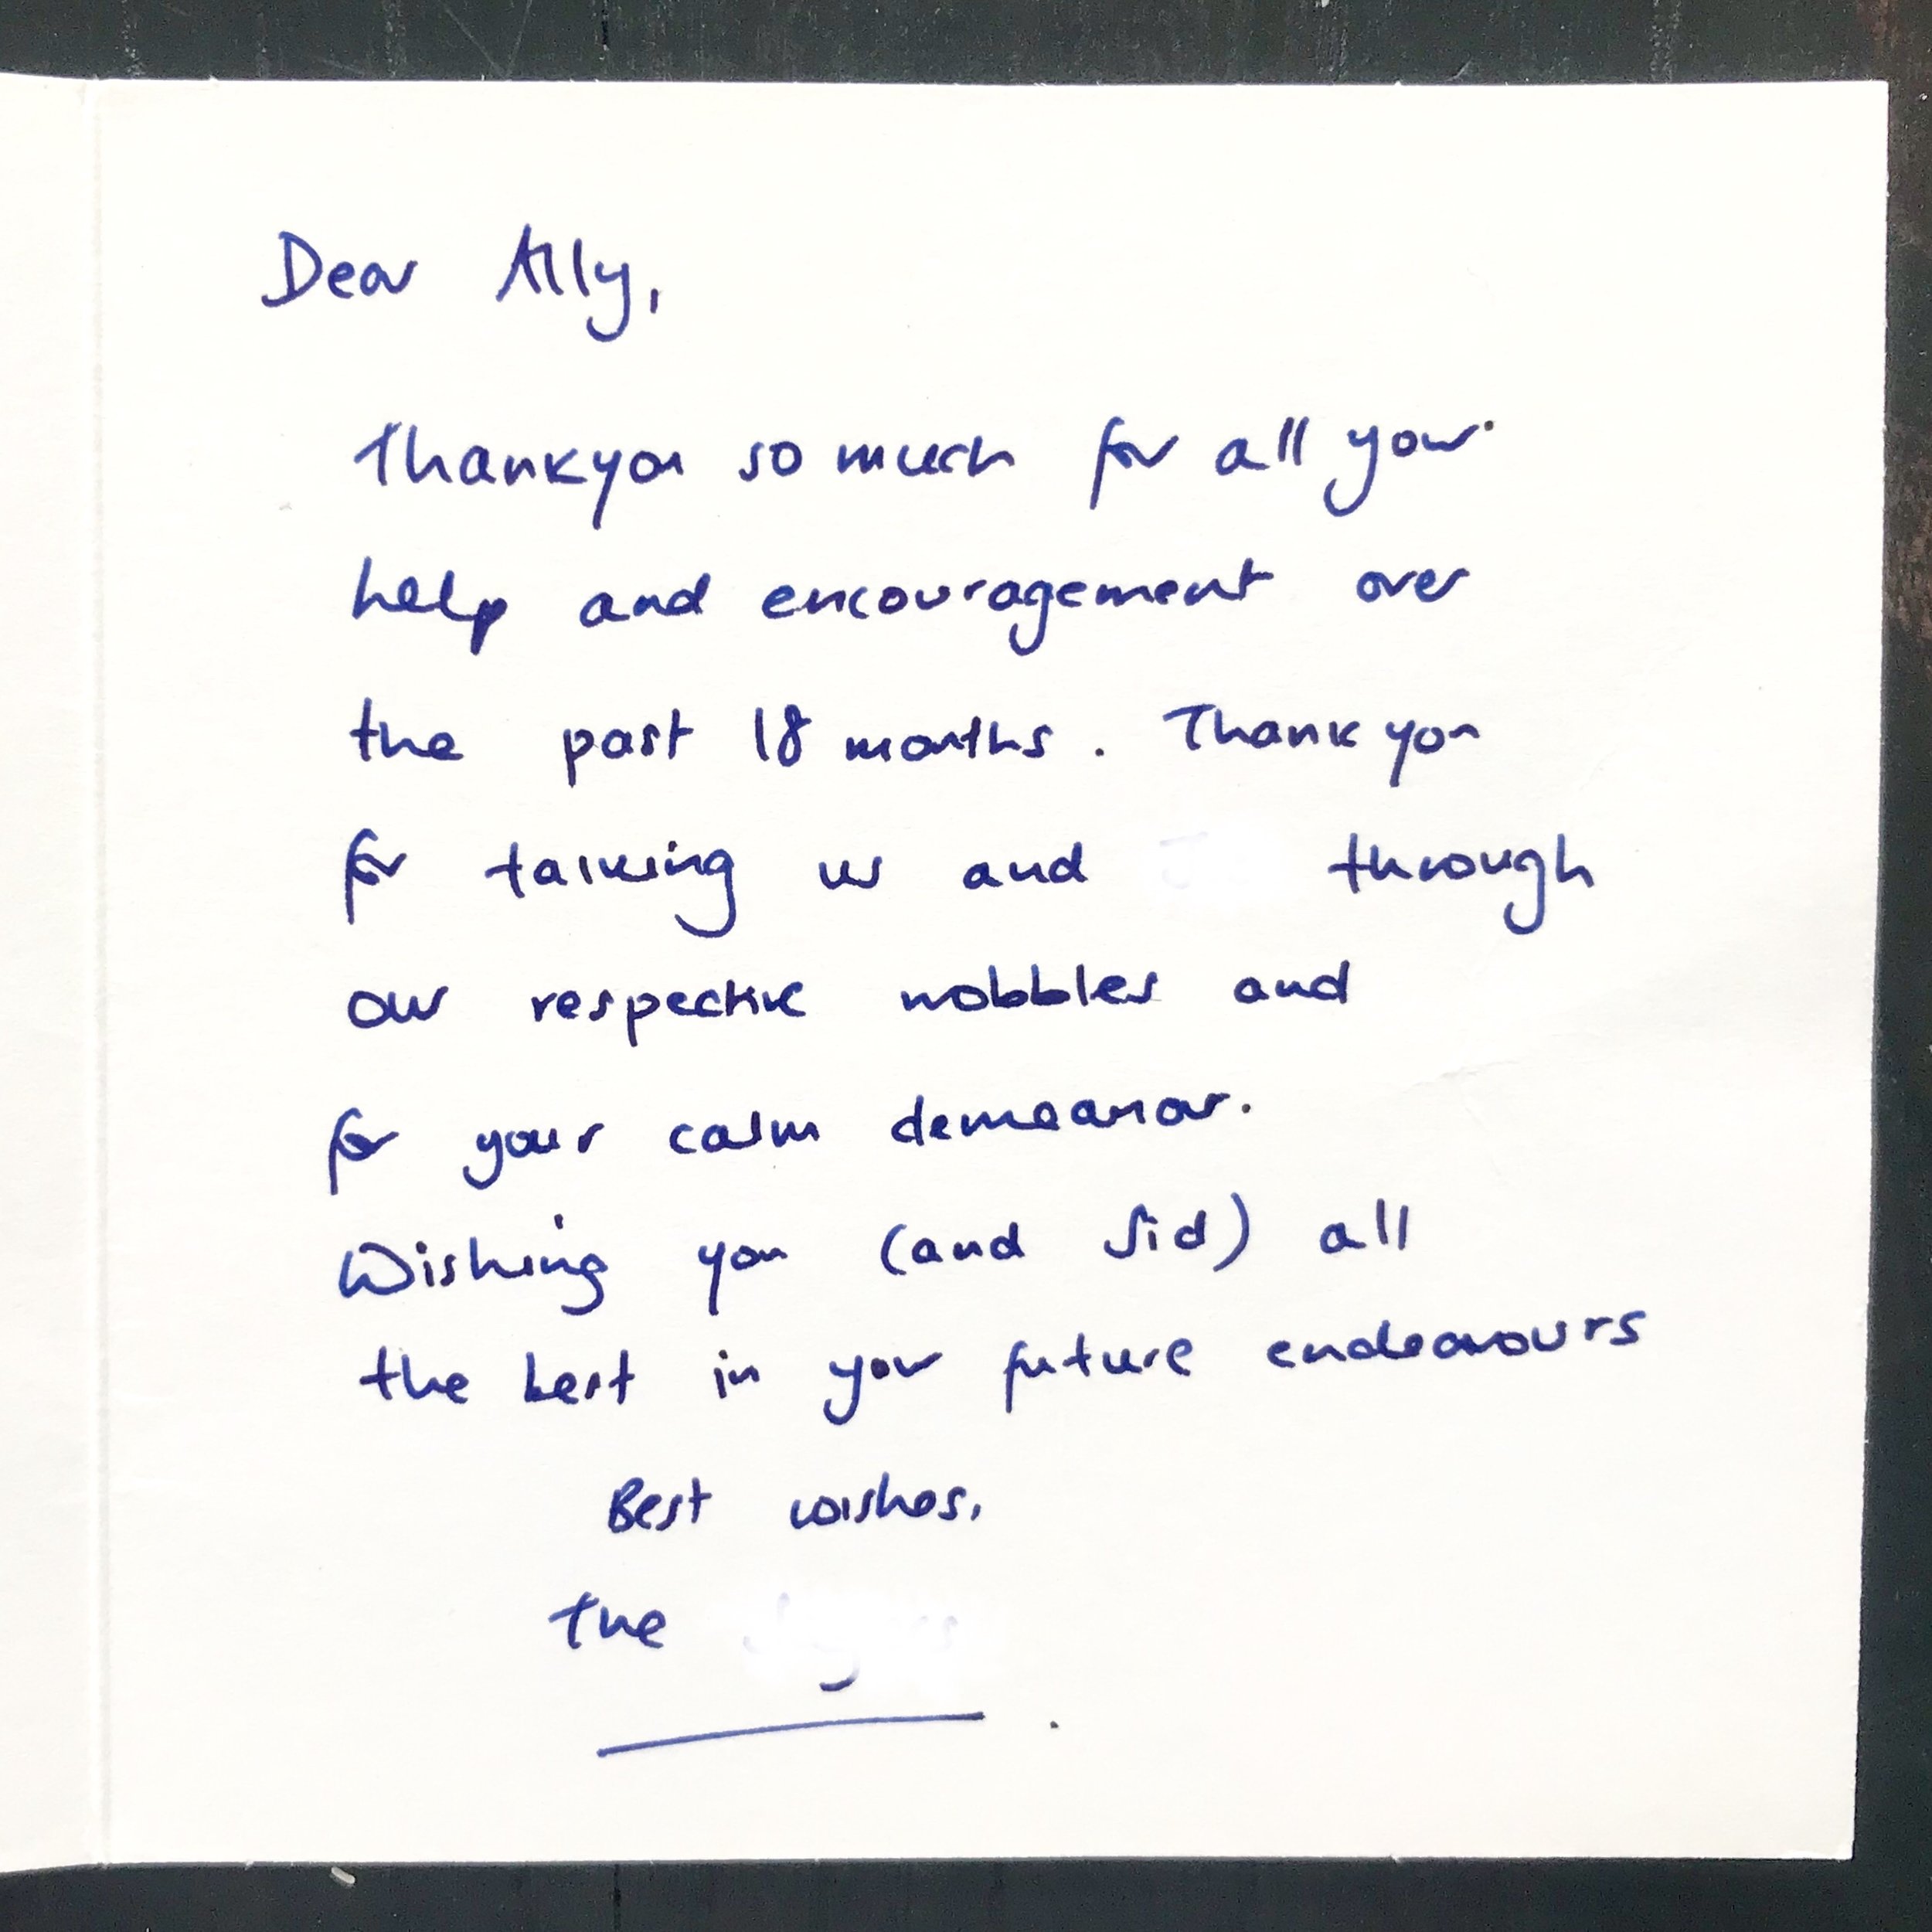 Dear Ally,
Thankyou so much for all your
help and encouragement over
the past 18 months. Thank you
for talking us and through
our respective wobbles and
for your calm demeanor.
Wishing you (and Sid) all
the best in your future endeavours
Best wishes,
The